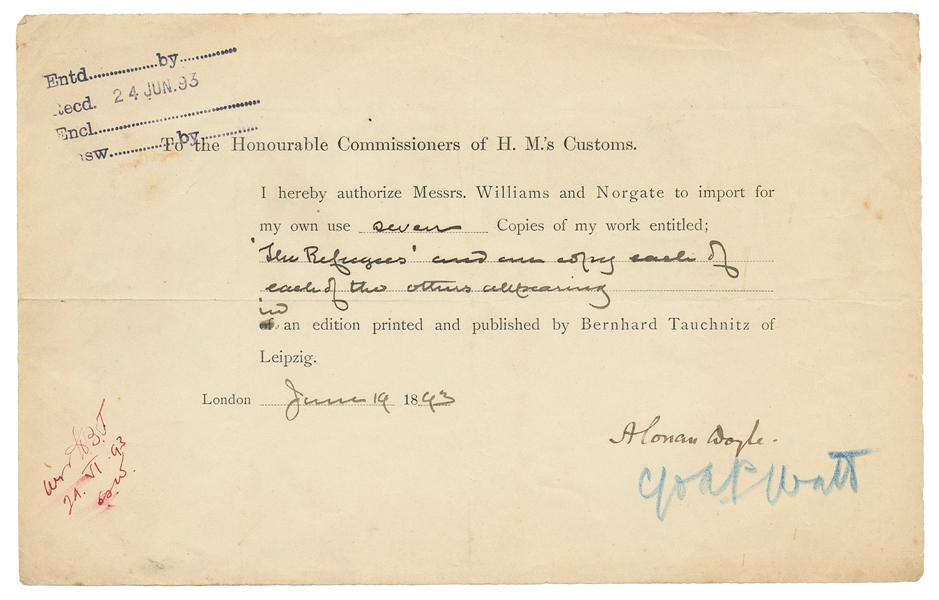 Entd...............by............
Recd. 24 JUN.93
Encl.
by
To the Honourable Commissioners of H. M.'s Customs.
I hereby authorize Messrs. Williams and Norgate to import for
my own use seven Copies of my work entitled;
'The Refugees' and one copy each of
each of the others appearing
in
of an edition printed and published by Bernhard Tauchnitz of
Leipzig.
London June 19 1893
A Conan Doyle.
c/o A P Watt
21. VI 93